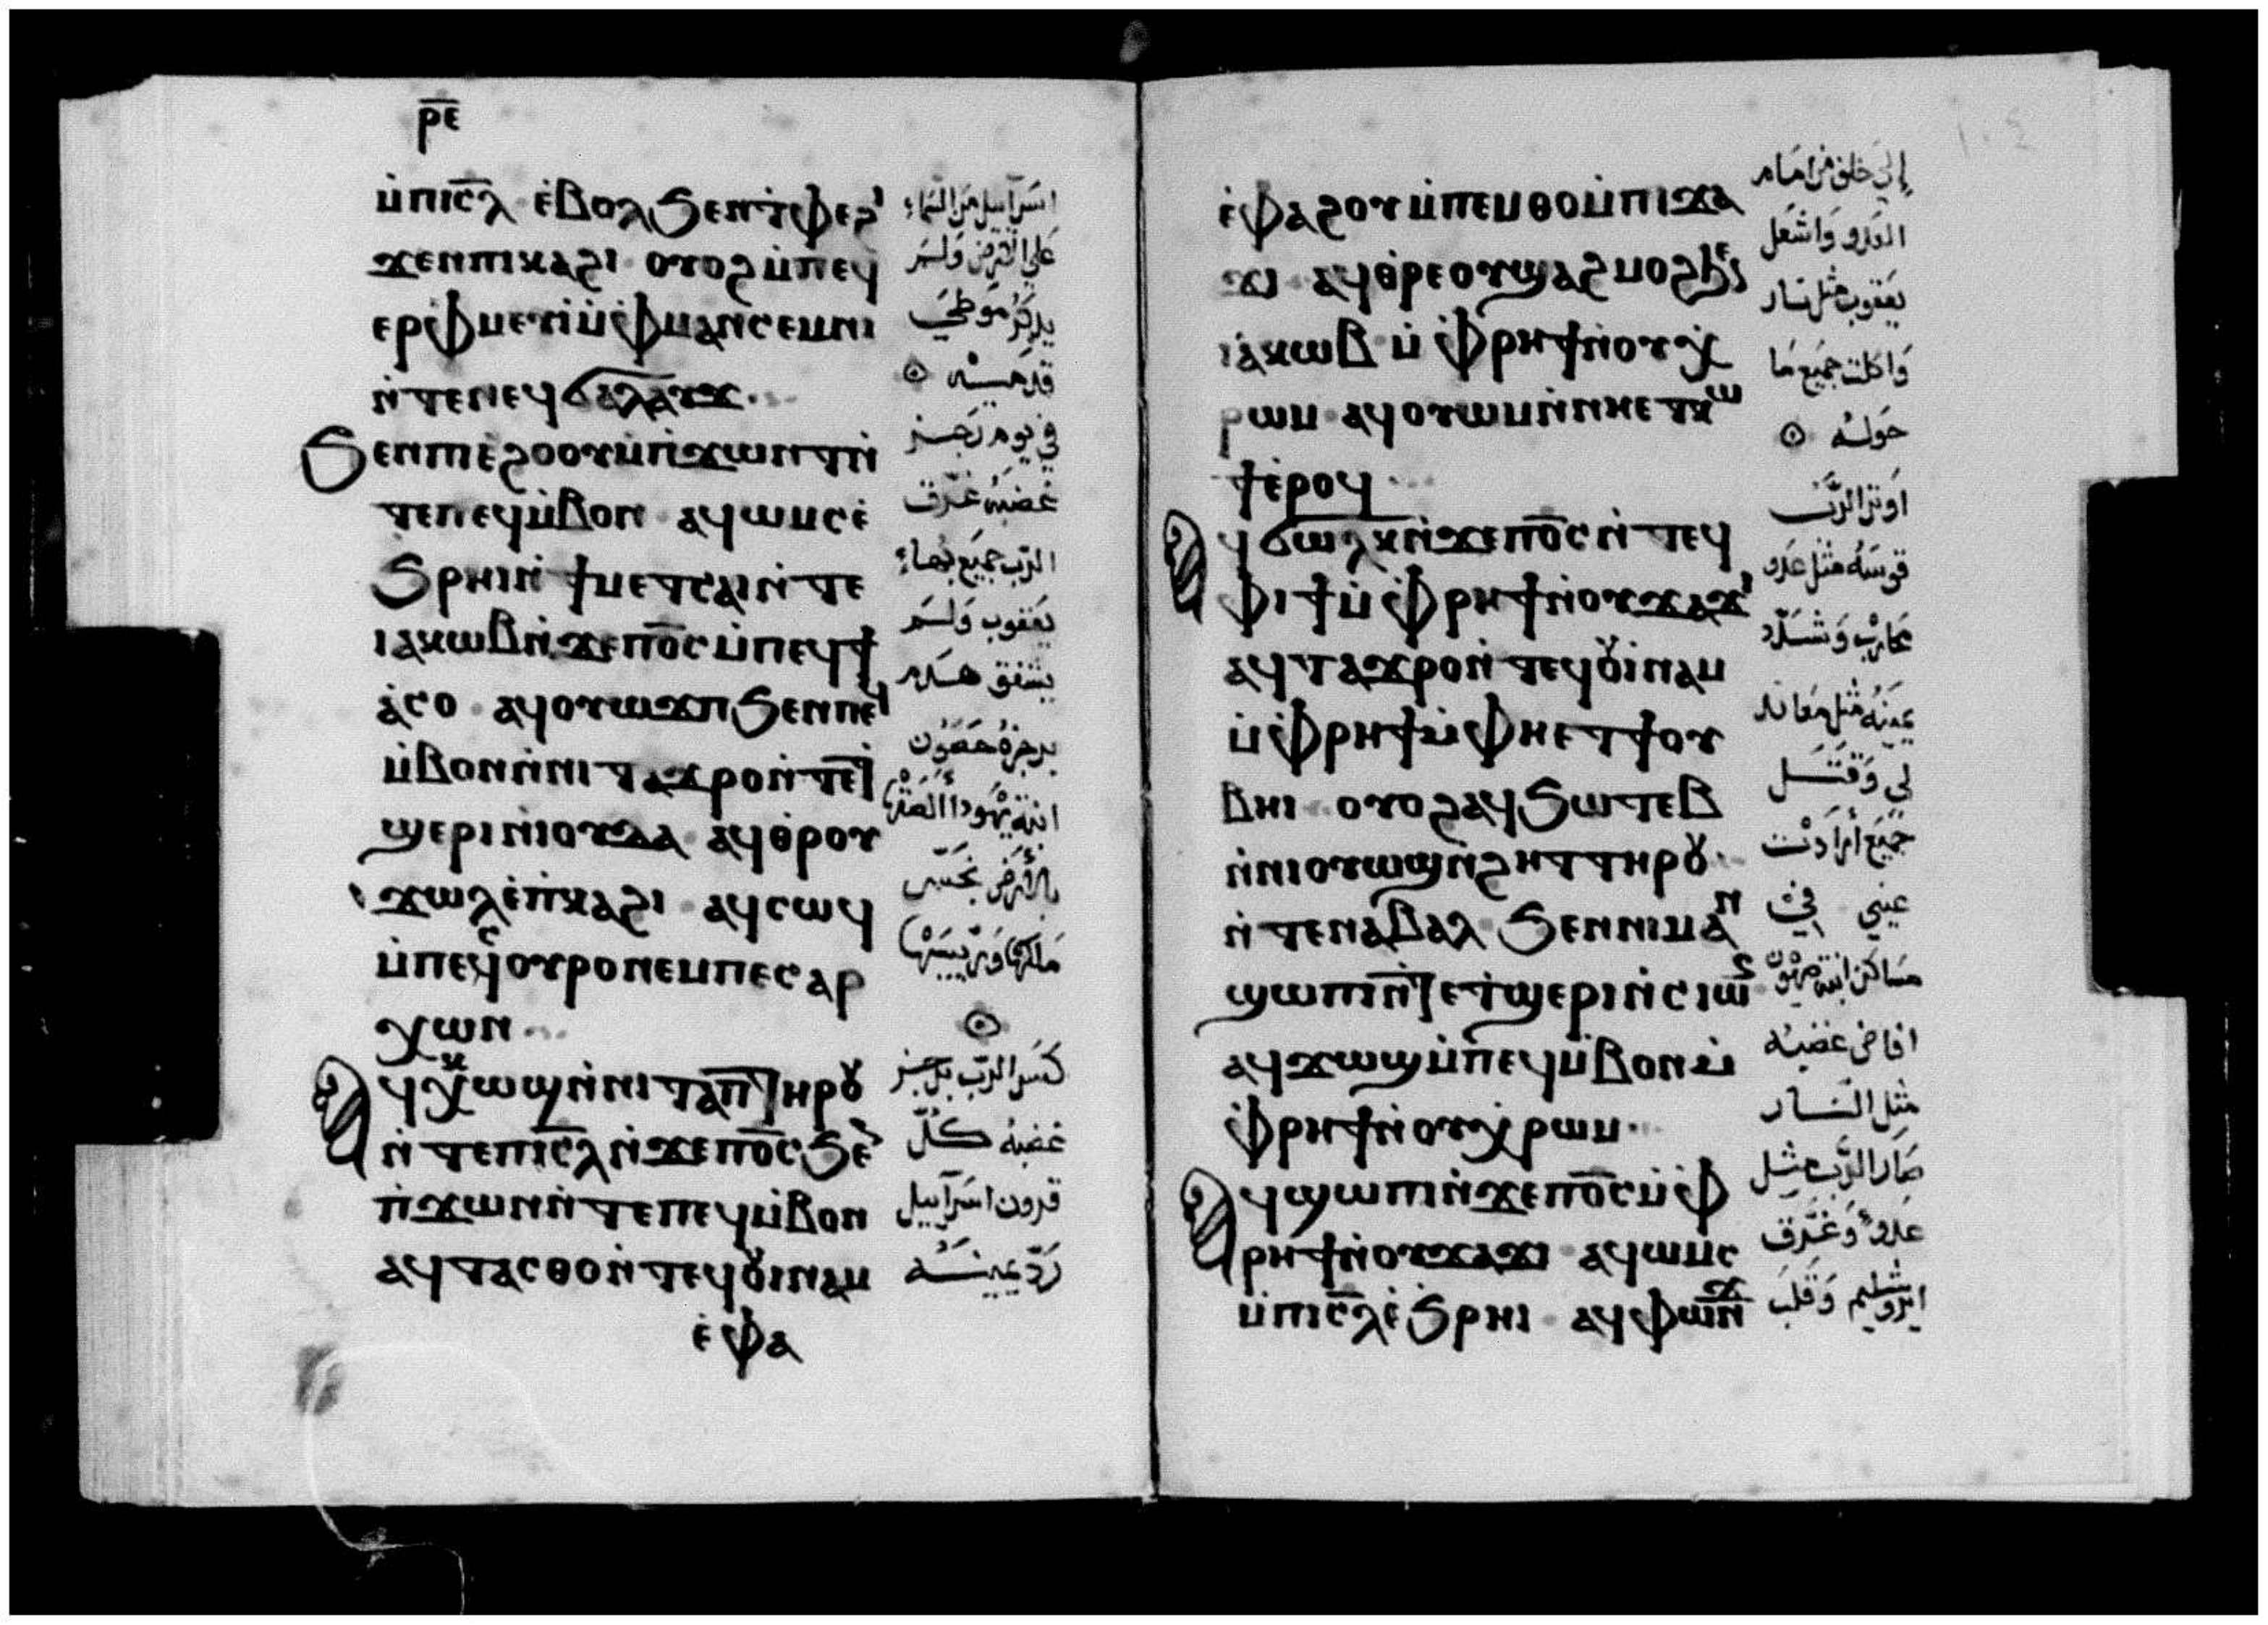 ⲣ̅ⲉ̅
ⲙ̀ⲡⲓⲥ̅ⲗ ⲉ̀ⲃⲟⲗϧⲉⲛⲧ̀ⲫⲉϩⲓ
ϫⲉⲛⲡⲓⲕⲁϩⲓ ⲟⲩⲟϩⲙ̀ⲡⲉϥ
ⲉⲣⲫ̀ⲙⲉⲩⲓ̀ⲙ̀ⲫ̀ⲙⲁⲛⲥⲉⲙⲛⲓ
ⲛ̀ⲧⲉⲛⲉϥϭⲁⲗⲁⲩϫ
ϧⲉⲛⲡⲓⲉ̀ϩⲟⲟⲩⲙ̀ⲡ̀ϫⲱⲛⲧⲛ̀
ⲧⲉⲡⲉϥⲙ̀ⲃⲟⲛ ⲁϥⲱⲙⲥⲉ̀
ϧⲣⲏⲓⲛ̀ϯⲙⲉⲧⲥⲁⲓⲛ̀ⲧⲉ
ⲓⲁⲕⲱⲃⲛ̀ϫⲉⲡⲟ̅ⲥ̅ⲙ̀ⲡⲉϥϯ
ⲁ̀ⲥⲟ ⲁϥⲟⲩⲱϫⲡϧⲉⲛⲡⲉϥ
ⲙ̀ⲃⲟⲛⲛ̀ⲛⲓⲧⲁϫⲣⲟⲛ̀ⲧⲉⲧ̀
ϣⲉⲣⲓⲛ̀ⲓⲟⲩⲇⲁ ⲁϥⲑ̀ⲣⲟⲩ
ϫⲱⲗⲉ̀ⲡ̀ⲕⲁϩⲓ ⲁϥⲥⲱϥ
ⲙ̀ⲡⲉⲥⲟⲩⲣⲟⲛⲉⲙⲡⲉⲥⲁⲣ
ⲭⲱⲛ
ⲁϥⲕⲱϣⲛ̀ⲛⲓⲧⲁⲡⲧⲏⲣⲟⲩ
ⲛ̀ⲧⲉⲡⲓⲥ̅ⲗⲛ̀ϫⲉⲡⲟ̅ⲥ̅ϧⲉⲛ
ⲡ̀ϫⲱⲛⲧⲛ̀ⲧⲉⲡⲉϥⲙ̀ⲃⲟⲛ
ⲁϥⲧⲁⲥⲑⲟⲛ̀ⲧⲉϥⲟⲩⲓ̀ⲛⲁⲙ
ⲉ̀ⲫⲁ
اسرآييل من السماء
علي الارض ولم
يذكر موطي
قدميه
في يوم رجز
غضبه غرق
الرب جميع بهاء
يعقوب ولم
يشفق هدم
برجزه حصون
ابنة يهودا الصقها
بالارض نجس
ملكها وريسها
كسر الرب برجز
غضبه كل
قرون اسرآييل
رد يمينه
ⲉ̀ⲫⲁϩⲟⲩⲙ̀ⲡⲉⲙⲑⲟⲙ̀ⲡⲓϫⲁ
ϫⲓ ⲁϥⲑ̀ⲣⲉⲟⲩϣⲁϩⲙⲟϩϧⲉⲛ
ⲓⲁⲕⲱⲃ ⲙ̀ⲫ̀ⲣⲏϯⲛ̀ⲟⲩⲭ̀
ⲣⲱⲙ ⲁϥⲟⲩⲱⲙⲛ̀ⲛⲏⲉⲧⲕⲱ
ϯⲉ̀ⲣⲟϥ
ⲁϥϭⲱⲗⲕⲛ̀ϫⲉⲡⲟ̅ⲥ̅ⲛ̀ⲧⲉϥ
ⲫⲓϯⲙ̀ⲫ̀ⲣⲏϯⲛ̀ⲟⲩϫⲁϫⲓ
ⲁϥⲧⲁϫⲣⲟⲛ̀ⲧⲉϥⲟⲩⲓ̀ⲛⲁⲙ
ⲙ̀ⲫ̀ⲣⲏϯⲙ̀ⲫⲏⲉⲧϯⲟⲩ
ⲃⲏⲓ ⲟⲩⲟϩⲁϥϧⲱⲧⲉⲃ
ⲛ̀ⲛⲓⲟⲩⲱϣⲛ̀ϩⲏⲧⲧⲏⲣⲟⲩ
ⲛ̀ⲧⲉⲛⲁⲃⲁⲗ ϧⲉⲛⲛⲓⲙⲁⲛ
ϣⲱⲡⲓⲛ̀ⲧⲉⲧ̀ϣⲉⲣⲓⲛ̀ⲥⲓⲱⲛ
ⲁϥϫⲱϣⲙ̀ⲡⲉϥⲙ̀ⲃⲟⲛⲙ̀
ⲫ̀ⲣⲏϯⲛ̀ⲟⲩⲭ̀ⲣⲱⲙ
ⲁϥϣⲱⲡⲓⲛ̀ϫⲉⲡⲟ̅ⲥ̅ⲙ̀ⲫ̀
ⲣⲏϯⲛ̀ⲟⲩϫⲁϫⲓ ⲁϥⲱⲙⲥ
ⲙ̀ⲡⲓⲥ̅ⲗⲉ̀ϧⲣⲏⲓ ⲁϥⲫⲱⲛϫ
إلي خلف من امام
العدو واشعل
يعقوب مثل نار
واكلت جميع ما
حوله
اوتر الرب
قوسه مثل عدو
محارب وشدد
يمينه مثل معاند
لي وقتل
جميع أرادت
عيني في
مساكن ابنة صهيون
افاض غضبه
مثل النار
صار الرب مثل
عدو وغرق
ايروشليم وقلب